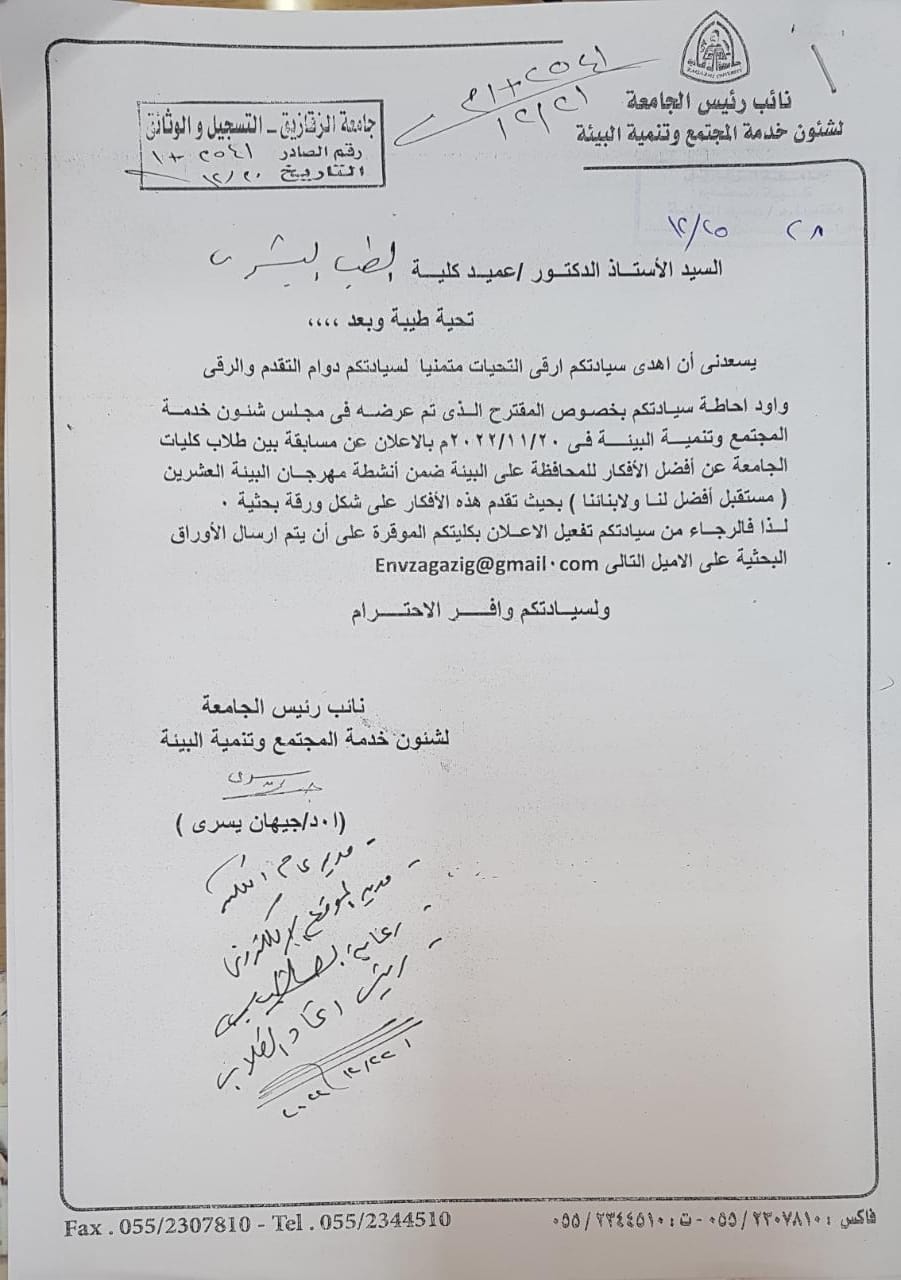 ZAGAZIG UNIVERSITY
نائب رئيس الجامعة
لشئون خدمة المجتمع وتنمية البيئة
٢٥٤١
١٢/٢١
جامعة الزقازيق ـ التسجيل و الوثائق
رقم الصادر ٢٥٤١
التاريخ ١٢/٢٠
٢٨ ١٢/٢٥
السيد الأستاذ الدكتور /عميد كلية الطب البشرى
تحية طيبة وبعد ،،،،
يسعدنى أن اهدى سيادتكم ارقى التحيات متمنيا لسيادتكم دوام التقدم والرقى
واود احاطة سيادتكم بخصوص المقترح الذى تم عرضه فى مجلس شئون خدمة
المجتمع وتنمية البيئة فى ٢٠٢٢/١١/٢٠م بالاعلان عن مسابقة بين طلاب كليات
الجامعة عن أفضل الأفكار للمحافظة على البيئة ضمن أنشطة مهرجان البيئة العشرين
( مستقبل أفضل لنا ولابنائنا ) بحيث تقدم هذه الأفكار على شكل ورقة بحثية ٠
لذا فالرجاء من سيادتكم تفعيل الاعلان بكليتكم الموقرة على أن يتم ارسال الأوراق
البحثية على الاميل التالى Envzagazig@gmail٠com
ولسيادتكم وافر الاحترام
نائب رئيس الجامعة
لشئون خدمة المجتمع وتنمية البيئة
(ا٠د/جيهان يسرى )
- مدير عام الكلية
- مدير الموقع الإلكترونى
- رعاية الطلاب
- اتحاد الطلاب
Fax . 055/2307810 - Tel . 055/2344510
فاكس : ٠٥٥/٢٣٠٧٨١٠ - ت : ٠٥٥/٢٣٤٤٥١٠